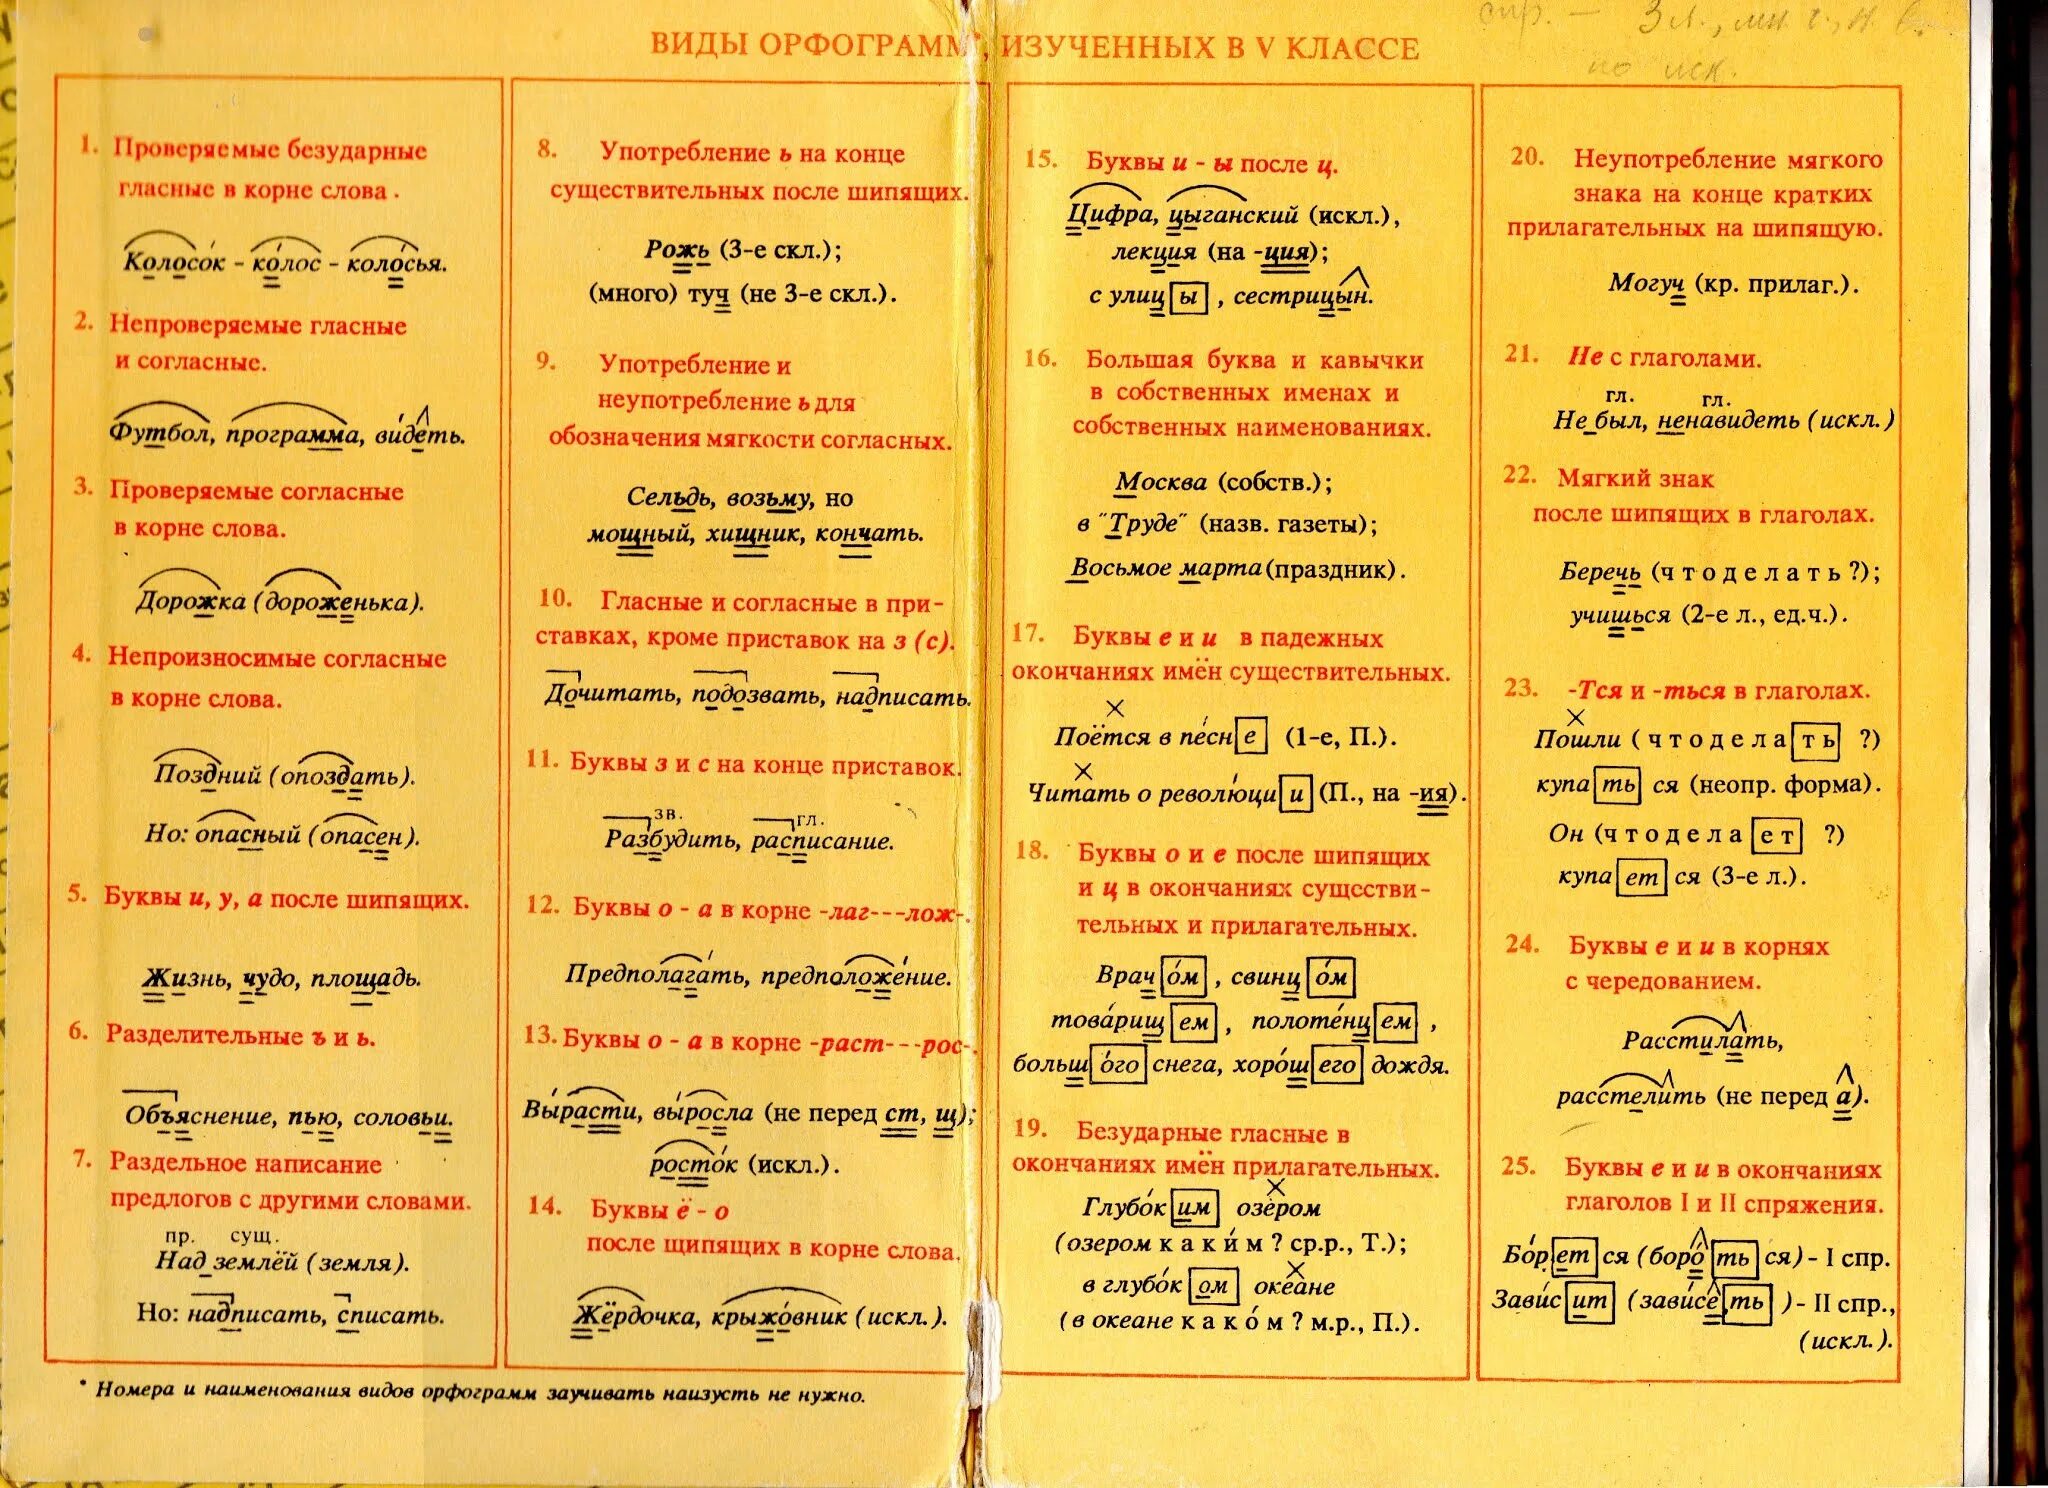 спр. – 3 л., мн. ч., н. в.
по иск.
ВИДЫ ОРФОГРАММ*, ИЗУЧЕННЫХ В V КЛАССЕ
1. Проверяемые безударные
гласные в корне слова.
Колосо́к - ко́лос - коло́сья.
2. Непроверяемые гласные
и согласные.
Футбол, программа, ви́деть.
3. Проверяемые согласные
в корне слова.
Дорожка (дороженька).
4. Непроизносимые согласные
в корне слова.
Поздний (опоздать).
Но: опасный (опасен).
5. Буквы и, у, а после шипящих.
Жизнь, чудо, площадь.
6. Разделительные ъ и ь.
Объяснение, пью, соловьи.
7. Раздельное написание
предлогов с другими словами.
пр. сущ.
Над землёй (земля).
Но: надписать, списать.
8. Употребление ь на конце
существительных после шипящих.
Рожь (3-е скл.);
(много) туч (не 3-е скл.).
9. Употребление и
неупотребление ь для
обозначения мягкости согласных.
Сельдь, возьму, но
мощный, хищник, кончать.
10. Гласные и согласные в при-
ставках, кроме приставок на з (с).
Дочитать, подозвать, надписать.
11. Буквы з и с на конце приставок.
зв. гл.
Разбудить, расписание.
12. Буквы о - а в корне -лаг---лож-.
Предполага́ть, предположе́ние.
13. Буквы о - а в корне -раст---рос-.
Вы́расти, вы́росла (не перед ст, щ);
росто́к (искл.).
14. Буквы ё - о
после щипящих в корне слова.
Жёрдочка, крыжо́вник (искл.).
15. Буквы и - ы после ц.
Цифра, цыганский (искл.),
лекция (на -ция);
с улицы, сестрицын.
16. Большая буква и кавычки
в собственных именах и
собственных наименованиях.
Москва (собств.);
в "Труде" (назв. газеты);
Восьмое марта (праздник).
17. Буквы е и и в падежных
окончаниях имён существительных.
Поётся в пе́сне (1-е, П.).
Читать о револю́ции (П., на -ия).
18. Буквы о и е после шипящих
и ц в окончаниях существи-
тельных и прилагательных.
Врачо́м, свинцо́м
това́рищем, полоте́нцем,
большо́го снега, хоро́шего дождя.
19. Безударные гласные в
окончаниях имён прилагательных.
Глубо́ким озером
(озером каки́м? ср.р., Т.);
в глубо́ком океане
(в океане како́м? м.р., П.).
20. Неупотребление мягкого
знака на конце кратких
прилагательных на шипящую.
Могуч (кр. прилаг.).
21. Не с глаголами.
гл. гл.
Не был, ненавидеть (искл.)
22. Мягкий знак
после шипящих в глаголах.
Беречь (что делать?);
учишься (2-е л., ед.ч.).
23. -Тся и -ться в глаголах.
Пошли (что делать?)
купаться (неопр. форма).
Он (что делает?)
купается (3-е л.).
24. Буквы е и и в корнях
с чередованием.
Расстилать,
расстелить (не перед а).
25. Буквы е и и в окончаниях
глаголов I и II спряжения.
Бо́рется (боро́ться) - I спр.
Зави́сит (зави́сеть) - II спр.,
(искл.).
* Номера и наименования видов орфограмм заучивать наизусть не нужно.